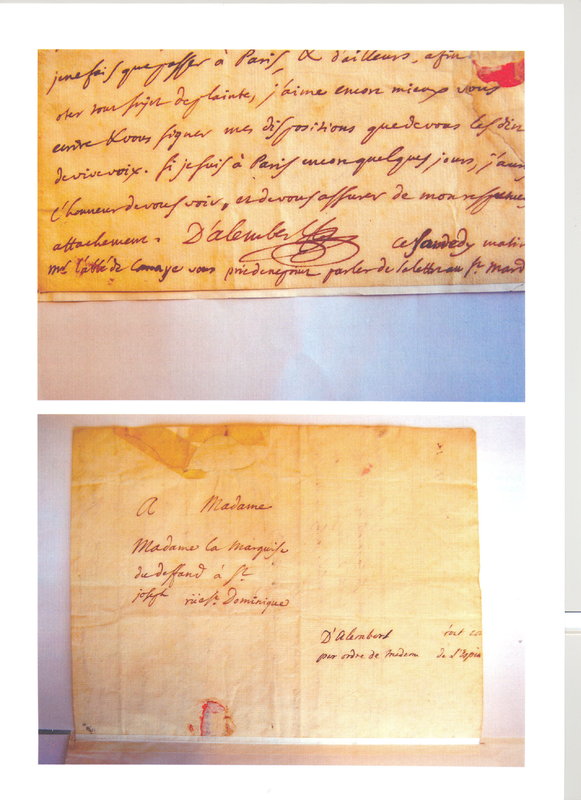 je ne fais que passer à Paris, & d'ailleurs, afin
oter tout sujet de plainte, j'aime encore mieux vous
ecrire & vous signer mes dispositions que de vous les dire
de vive voix. si je suis à Paris encor quelques jours, j'aurai
l'honneur de vous voir, et de vous assurer de mon respectueux
attachement. D'alembert ce samedy matin
mr l'abbé de Canaye vous prie de ne point parler de la lettre au Sr
A Madame
Madame la Marquise
du deffand à St
joseph rue St Dominique
D'Alembert
par ordre de madame de l'Espin